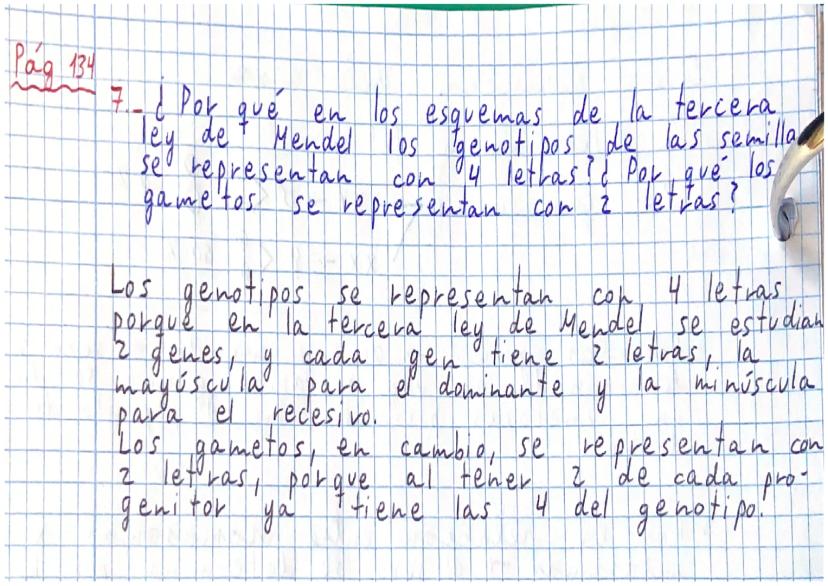 Pág 134
7.- ¿Por qué en los esquemas de la tercera
ley de Mendel los genotipos de las semilla
se representan con 4 letras? ¿Por qué los
gametos se representan con 2 letras?
Los genotipos se representan con 4 letras
porque en la tercera ley de Mendel se estudian
2 genes, y cada gen tiene 2 letras, la
mayúscula para el dominante y la minúscula
para el recesivo.
Los gametos, en cambio, se representan con
2 letras, porque al tener 2 de cada pro-
genitor ya tiene las 4 del genotipo.